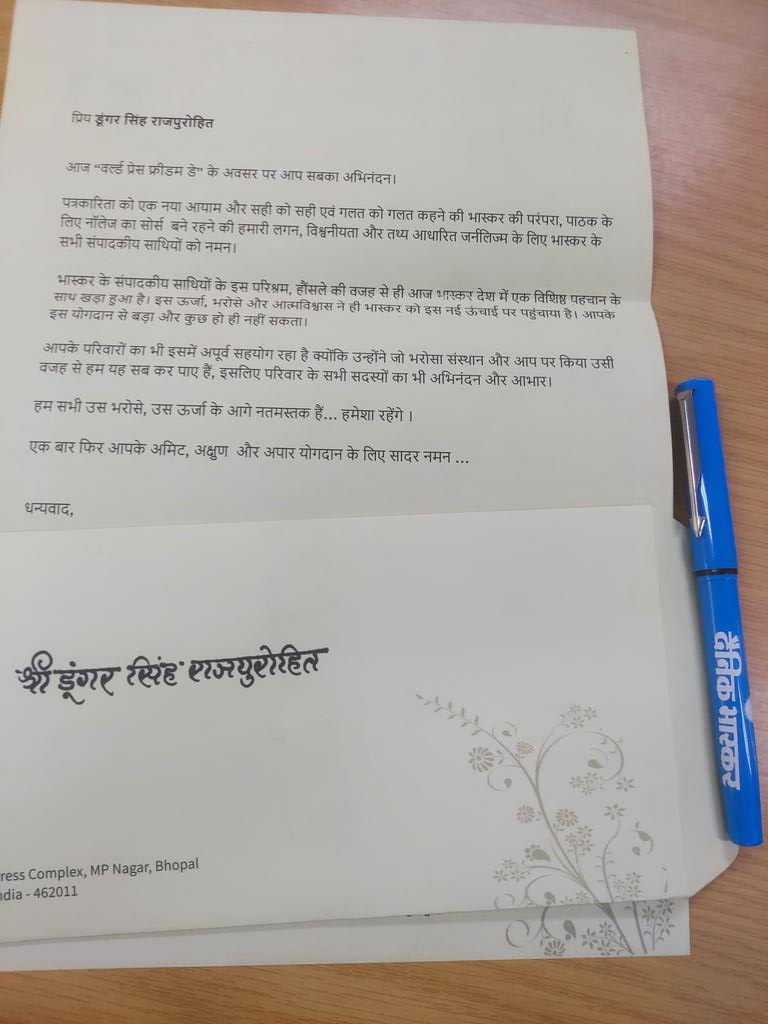 प्रिय डूंगर सिंह राजपुरोहित
आज “वर्ल्ड प्रेस फ्रीडम डे” के अवसर पर आप सबका अभिनंदन।
पत्रकारिता को एक नया आयाम और सही को सही एवं गलत को गलत कहने की भास्कर की परंपरा, पाठक के
लिए नॉलेज का सोर्स बने रहने की हमारी लगन, विश्वनीयता और तथ्य आधारित जर्नलिज्म के लिए भास्कर के
सभी संपादकीय साथियों को नमन।
भास्कर के संपादकीय साथियों के इस परिश्रम, हौंसले की वजह से ही आज भास्कर देश में एक विशिष्ठ पहचान के
साथ खड़ा हुआ है। इस ऊर्जा, भरोसे और आत्मविश्वास ने ही भास्कर को इस नई ऊंचाई पर पहुंचाया है। आपके
इस योगदान से बड़ा और कुछ हो ही नहीं सकता।
आपके परिवारों का भी इसमें अपूर्व सहयोग रहा है क्योंकि उन्होंने जो भरोसा संस्थान और आप पर किया उसी
वजह से हम यह सब कर पाए हैं, इसलिए परिवार के सभी सदस्यों का भी अभिनंदन और आभार।
हम सभी उस भरोसे, उस ऊर्जा के आगे नतमस्तक हैं... हमेशा रहेंगे ।
एक बार फिर आपके अमिट, अक्षुण और अपार योगदान के लिए सादर नमन ...
धन्यवाद,
श्री डूंगर सिंह राजपुरोहित
ress Complex, MP Nagar, Bhopal
ndia - 462011
दैनिक भास्कर